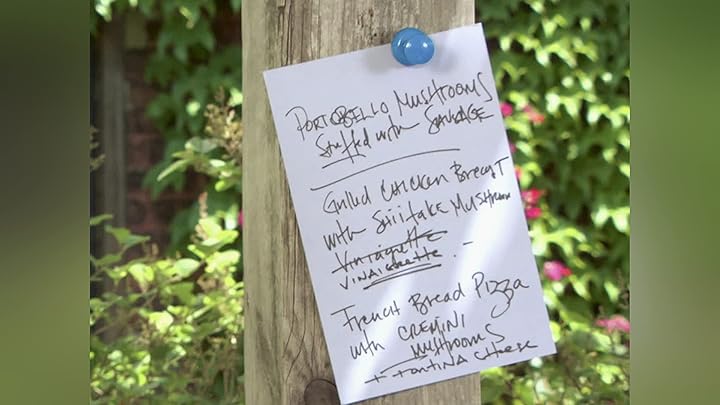 PORTOBELLO MUSHROOMS
Stuffed with SAUSAGE
Grilled CHICKEN BreasT
with SHiiTake Mushroom
Viniagrette
VINAIGRETTE.-
French Bread Pizza
with CREMINI
MUSHROOMS
+ FONTINA CHEESE